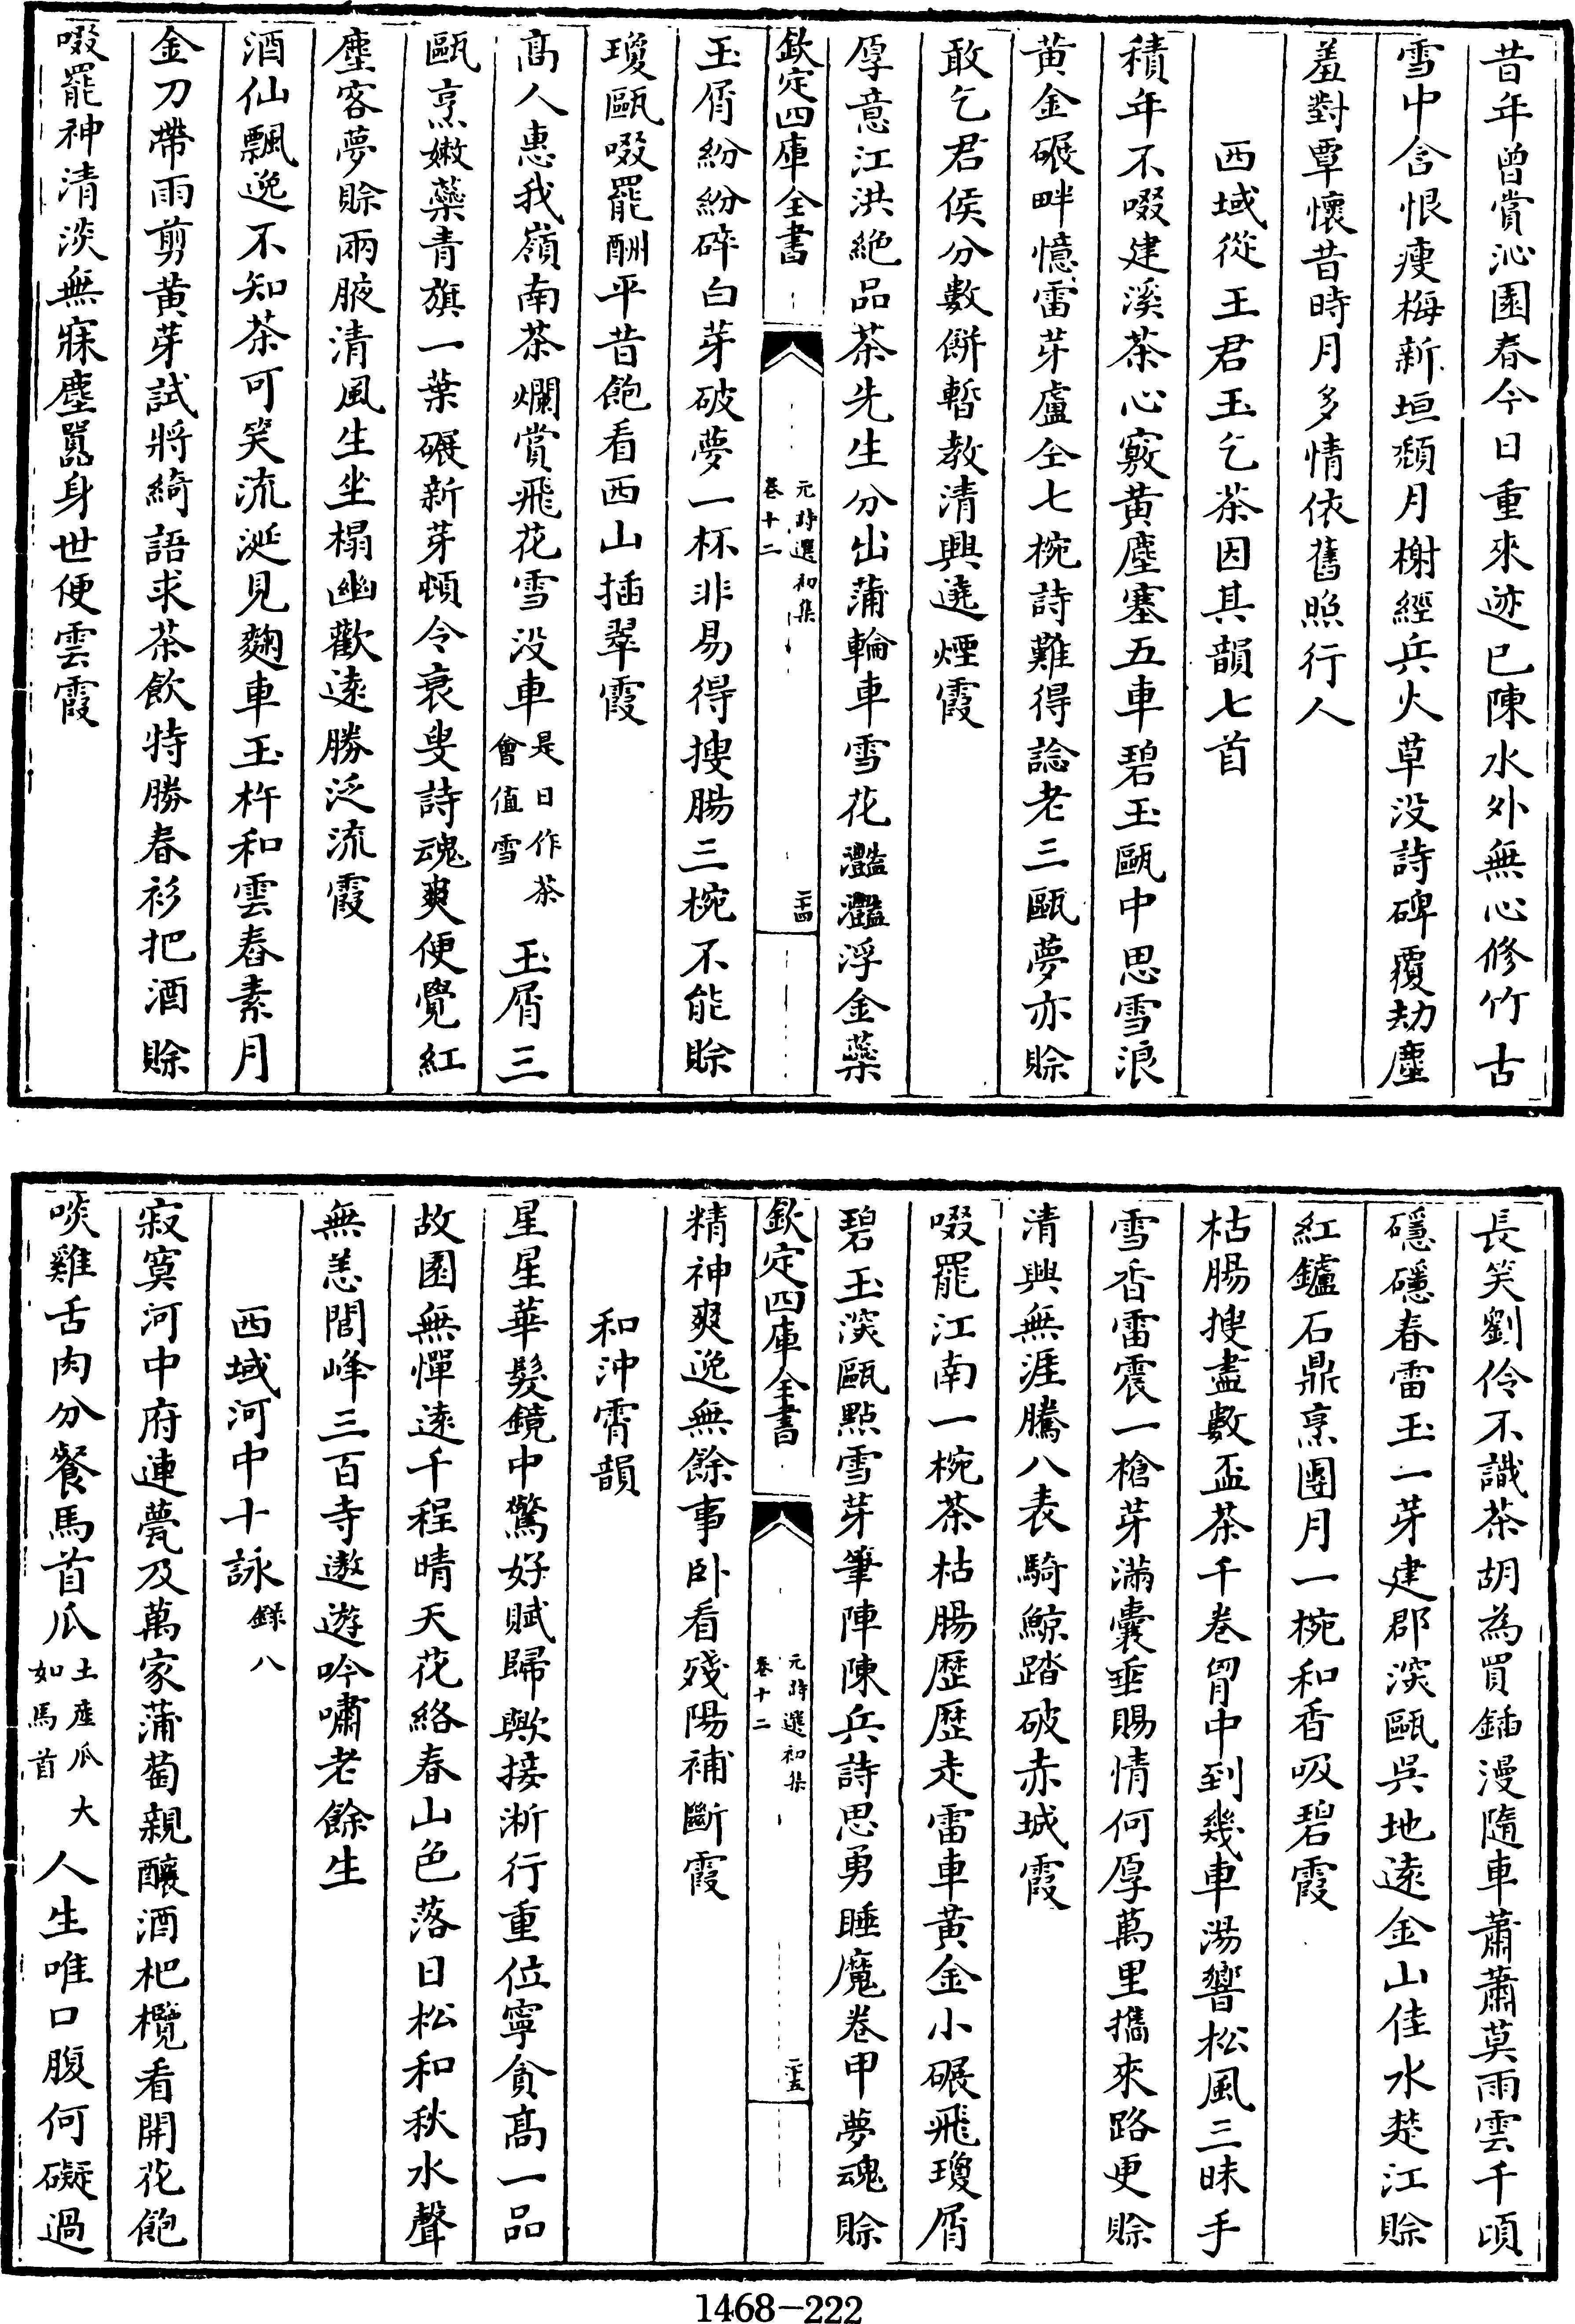 昔年曾賞沁園春今日重來迹已陳水外無心修竹古
雪中含恨瘦梅新垣頹月榭經兵火草沒詩碑覆劫塵
羞對覃懷昔時月多情依舊照行人
西域從王君玉乞茶因其韻七首
積年不啜建溪茶心竅黃塵塞五車碧玉甌中思雪浪
黃金碾畔憶雷芽盧仝七椀詩難得諗老三甌夢亦賒
敢乞君侯分數餅暫教清興遶煙霞
厚意江洪絶品茶先生分出蒲輪車雪花灩灩浮金蘂
欽定四庫全書
元詩選初集
卷十二
二十四
玉屑紛紛碎白芽破夢一杯非易得搜腸三椀不能賒
瓊甌啜罷酬平昔飽看西山插翠霞
高人惠我嶺南茶爛賞飛花雪没車是日作茶會值雪玉屑三
甌烹嫩蘂青旗一葉碾新芽頓令衰叟詩魂爽便覺紅
塵客夢賒兩腋清風生坐榻幽歡遠勝泛流霞
酒仙飄逸不知茶可笑流涎見麴車玉杵和雲舂素月
金刀帶雨剪黃芽試將綺語求茶飲特勝春衫把酒賒
啜罷神清淡無寐塵囂身世便雲霞
長笑劉伶不識茶胡為買鍤漫隨車蕭蕭莫雨雲千頃
隱隱春雷玉一芽建郡深甌吳地遠金山佳水楚江賒
紅鑪石鼎烹團月一椀和香吸碧霞
枯腸搜盡數盃茶千卷胷中到幾車湯響松風三昧手
雪香雷震一槍芽滿囊垂賜情何厚萬里攜來路更賒
清興無涯騰八表騎鯨踏破赤城霞
啜罷江南一椀茶枯腸歴歴走雷車黃金小碾飛瓊屑
碧玉深甌點雪芽筆陣陳兵詩思勇睡魔卷甲夢魂賒
欽定四庫全書
元詩選初集
卷十二
二十五
精神爽逸無餘事卧看殘陽補斷霞
和沖霄韻
星星華髮鏡中驚好賦歸歟接淅行重位寧貪高一品
故園無憚遠千程晴天花絡春山色落日松和秋水聲
無恙閭峰三百寺遨遊吟嘯老餘生
西域河中十詠錄八
寂寞河中府連甍及萬家蒲萄親釀酒杷欖看開花飽
啖雞舌肉分餐馬首瓜土産瓜大如馬首人生唯口腹何礙過
1468-222